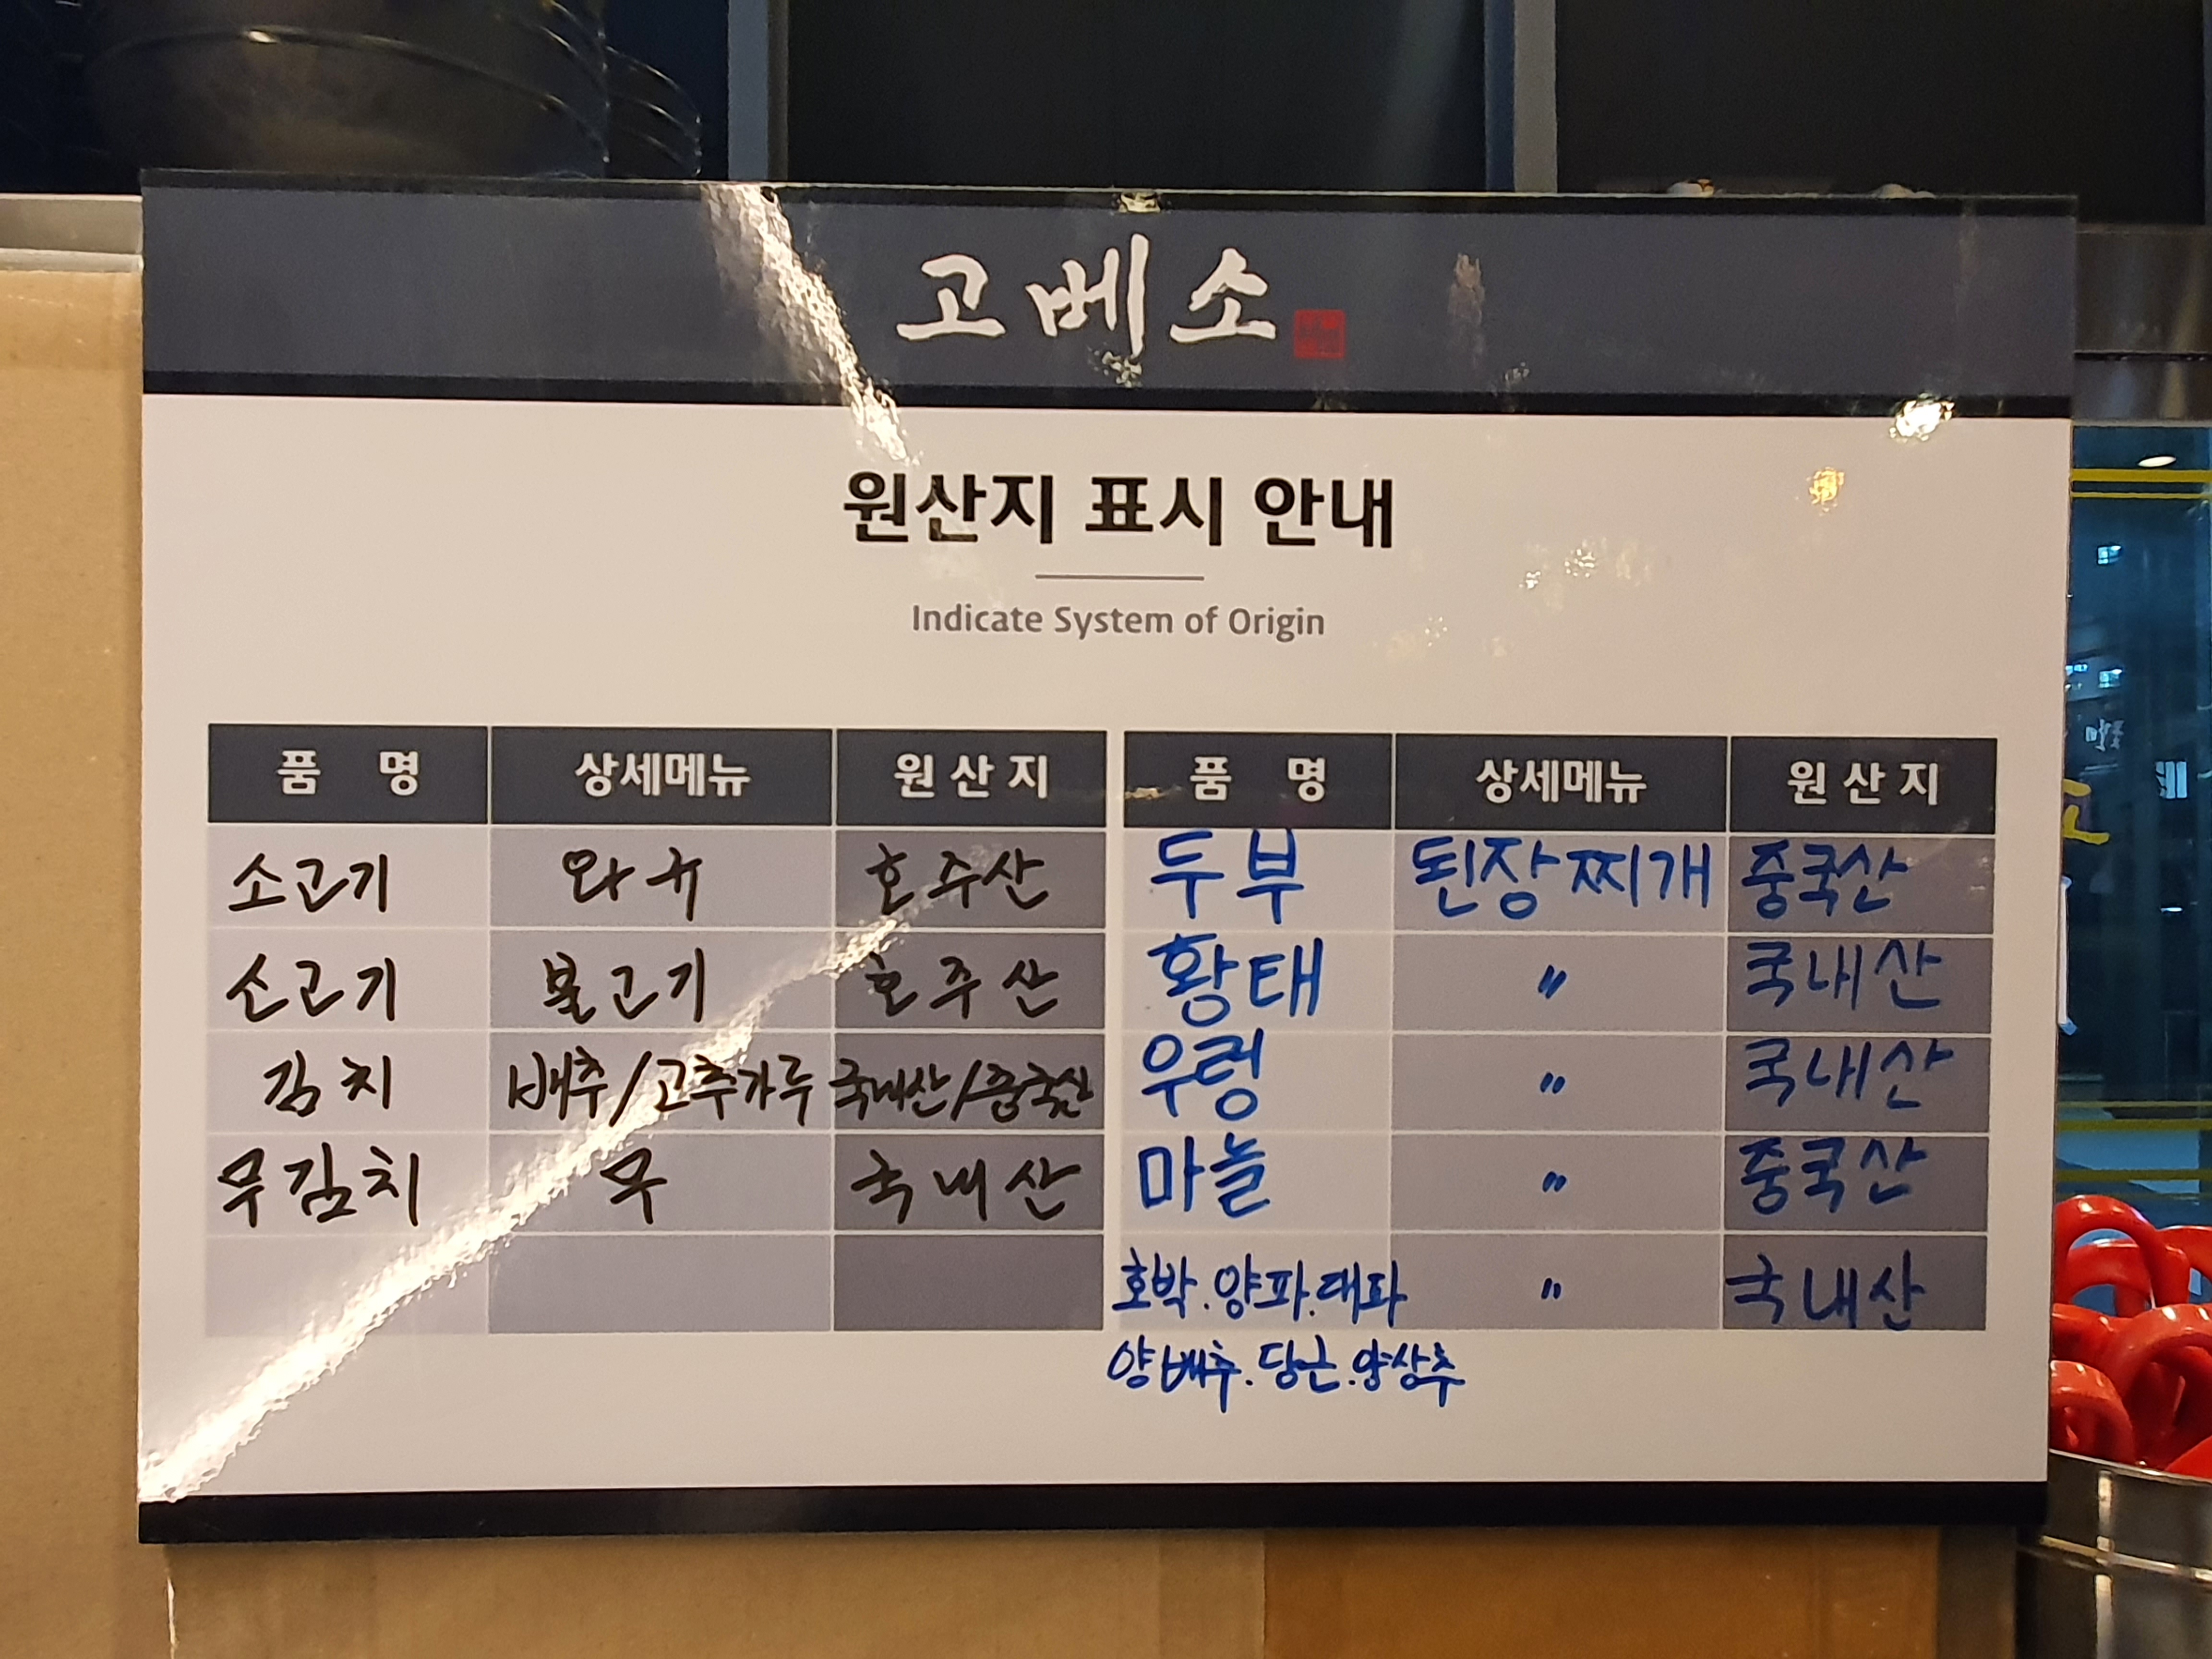 고베소
원산지 표시 안내
Indicate System of Origin
품 명 상세메뉴 원 산 지 품 명 상세메뉴 원 산 지
소고기 와규 호주산 두부 된장찌개 중국산
소고기 불고기 호주산 황태 〃 국내산
김치 배추/고추가루 국내산/중국산 우렁 〃 국내산
무김치 무 국내산 마늘 〃 중국산
호박.양파.대파 〃 국내산
양배추.당근.양상추